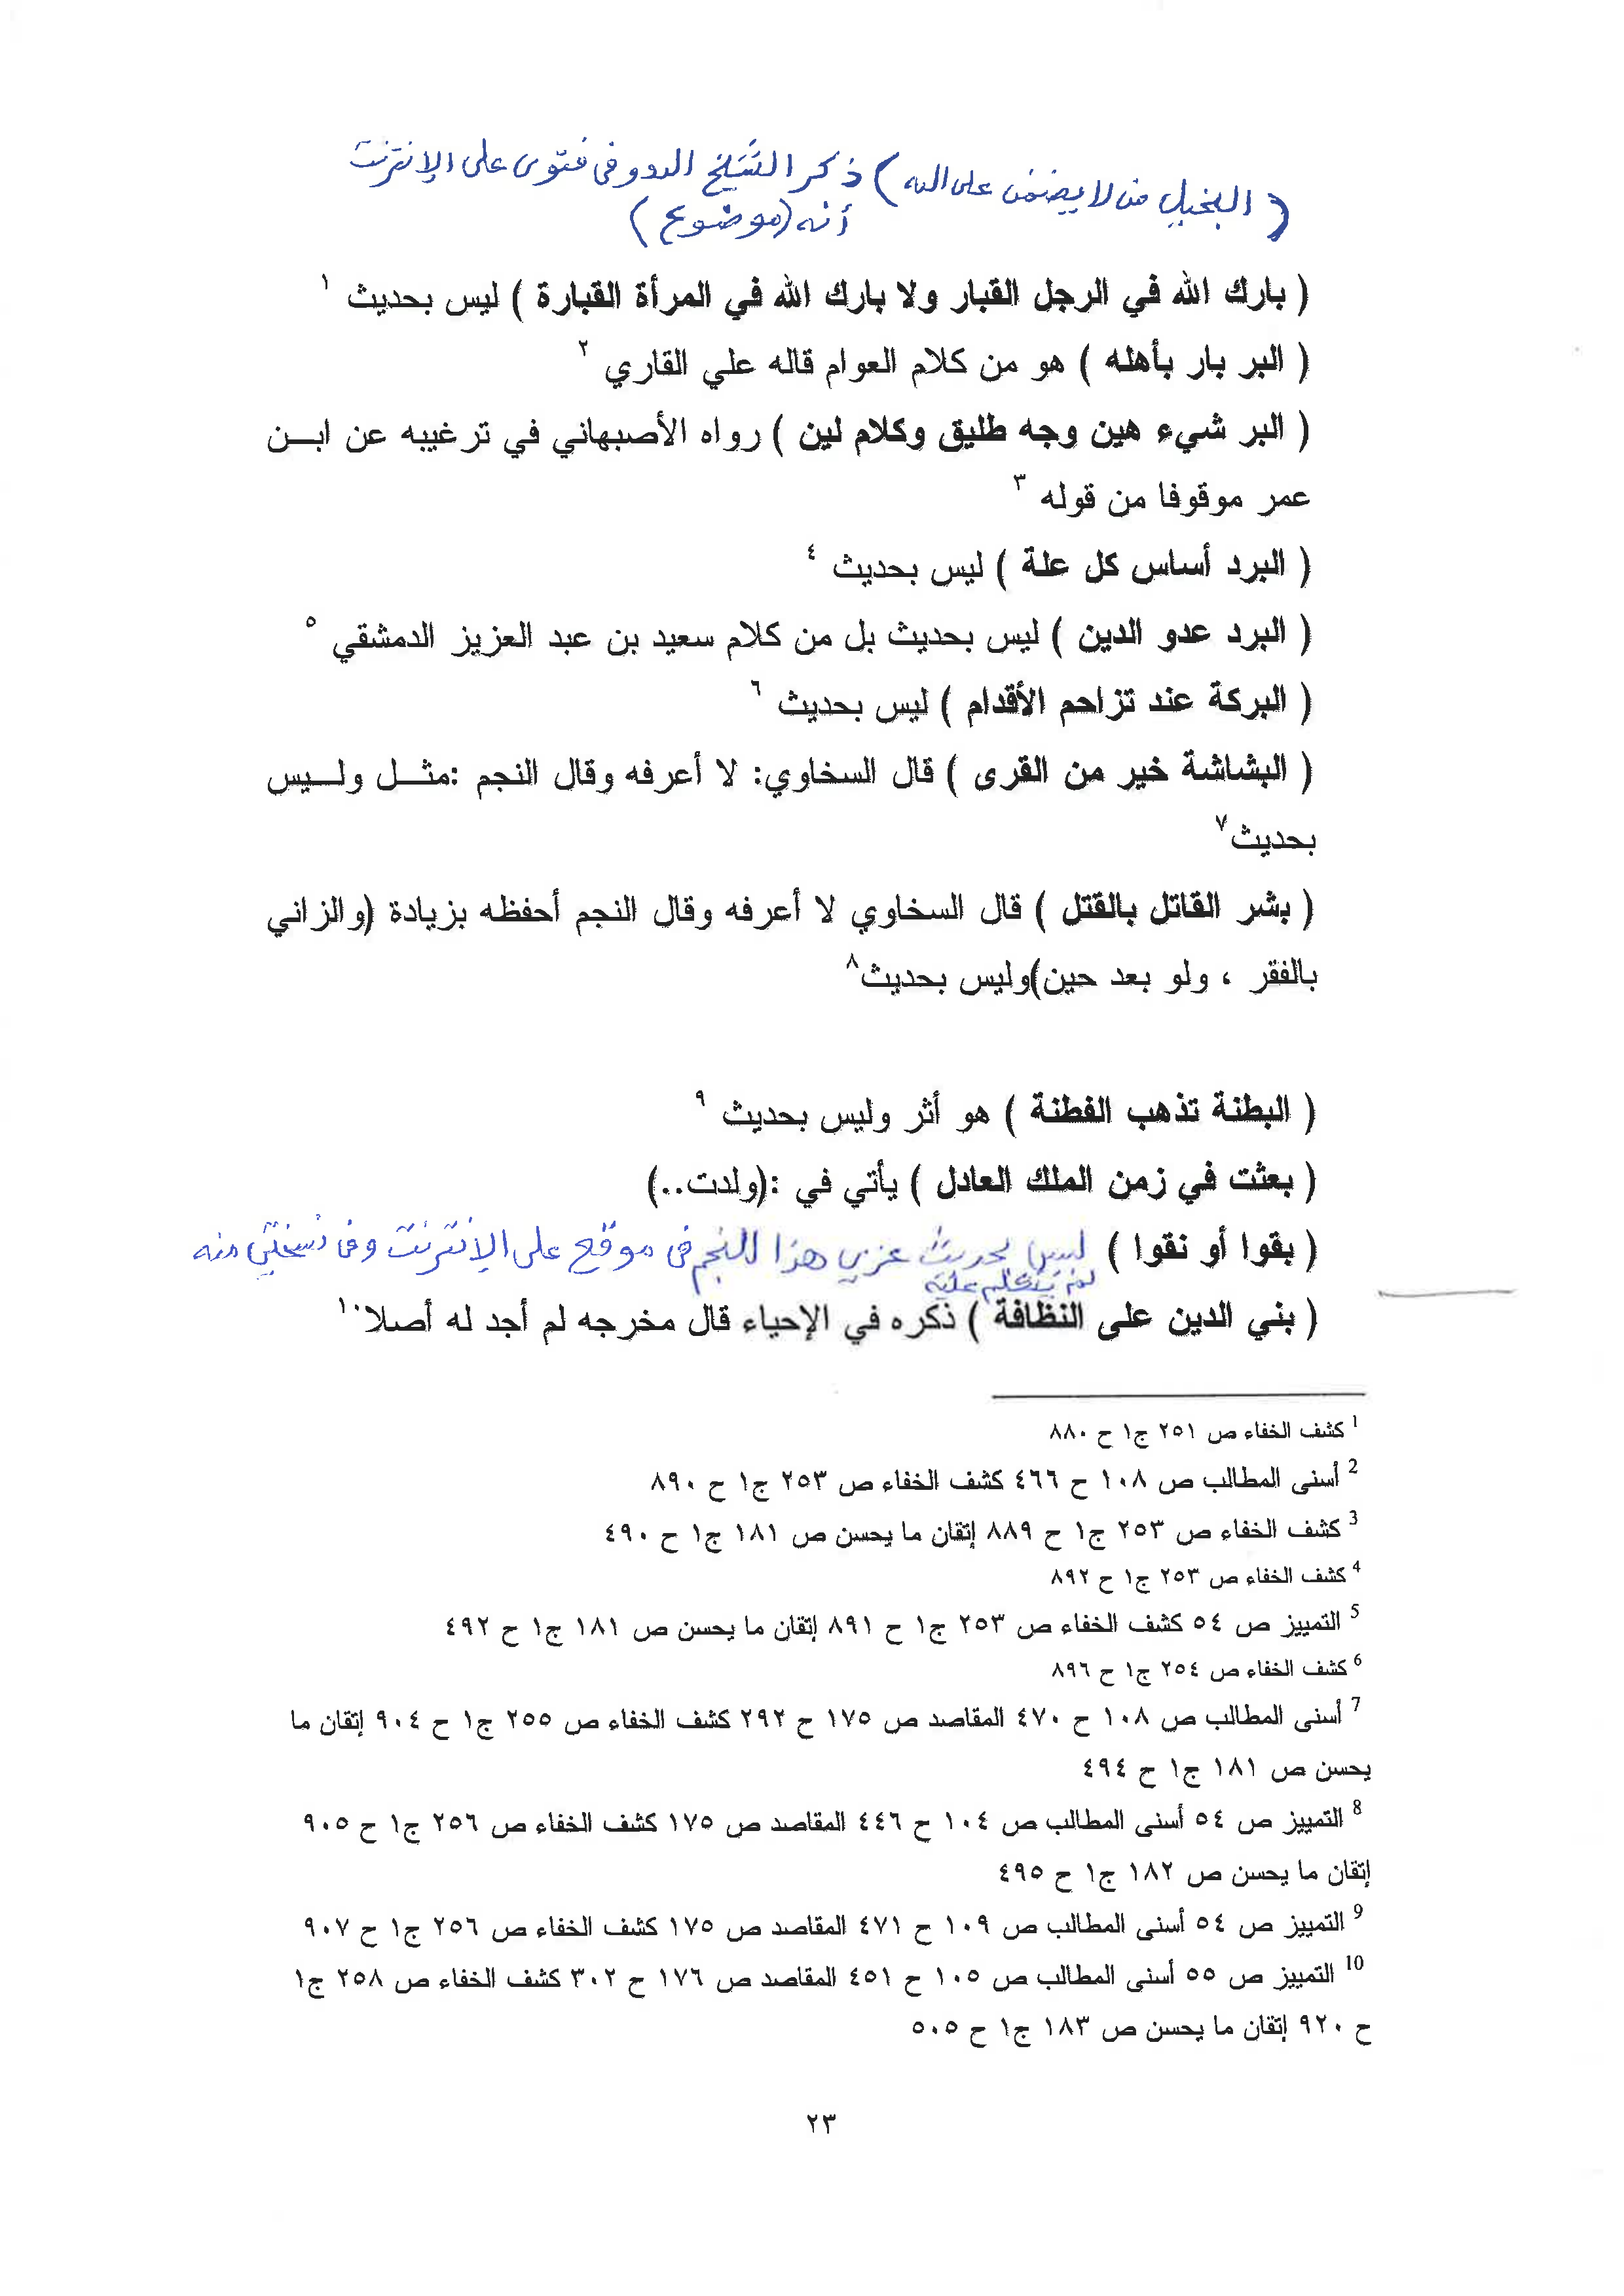 ( البخيل من لا يضمن على الله ) ذكر الشيخ الددو في فتوى على الإنترنت
أنه (موضوع)
( بارك الله في الرجل القبار ولا بارك الله في المرأة القبارة ) ليس بحديث ١
( البر بار بأهله ) هو من كلام العوام قاله علي القاري ٢
( البر شيء هين وجه طليق وكلام لين ) رواه الأصبهاني في ترغيبه عن ابن
عمر موقوفا من قوله ٣
( البرد أساس كل علة ) ليس بحديث ٤
( البرد عدو الدين ) ليس بحديث بل من كلام سعيد بن عبد العزيز الدمشقي ٥
( البركة عند تزاحم الأقدام ) ليس بحديث ٦
( البشاشة خير من القرى ) قال السخاوي: لا أعرفه وقال النجم :مثل وليس
بحديث ٧
( بشر القاتل بالقتل ) قال السخاوي لا أعرفه وقال النجم أحفظه بزيادة (والزاني
بالفقر ، ولو بعد حين)وليس بحديث ٨
( البطنة تذهب الفطنة ) هو أثر وليس بحديث ٩
( بعثت في زمن الملك العادل ) يأتي في :(ولدت..)
( بقوا أو نقوا ) ليس بحديث عزي هذا للنجم في موقع على الإنترنت وفي نسختي منه
لم يتكلم عليه
( بني الدين على النظافة ) ذكره في الإحياء قال مخرجه لم أجد له أصلا ١٠
1 كشف الخفاء ص ٢٥١ ج١ ح ٨٨٠
2 أسنى المطالب ص ١٠٨ ح ٤٦٦ كشف الخفاء ص ٢٥٣ ج١ ح ٨٩٠
3 كشف الخفاء ص ٢٥٣ ج١ ح ٨٨٩ إتقان ما يحسن ص ١٨١ ج١ ح ٤٩٠
4 كشف الخفاء ص ٢٥٣ ج١ ح ٨٩٢
5 التمييز ص ٥٤ كشف الخفاء ص ٢٥٣ ج١ ح ٨٩١ إتقان ما يحسن ص ١٨١ ج١ ح ٤٩٢
6 كشف الخفاء ص ٢٥٤ ج١ ح ٨٩٦
7 أسنى المطالب ص ١٠٨ ح ٤٧٠ المقاصد ص ١٧٥ ح ٢٩٢ كشف الخفاء ص ٢٥٥ ج١ ح ٩٠٤ إتقان ما
يحسن ص ١٨١ ج١ ح ٤٩٤
8 التمييز ص ٥٤ أسنى المطالب ص ١٠٤ ح ٤٤٦ المقاصد ص ١٧٥ كشف الخفاء ص ٢٥٦ ج١ ح ٩٠٥
إتقان ما يحسن ص ١٨٢ ج١ ح ٤٩٥
9 التمييز ص ٥٤ أسنى المطالب ص ١٠٩ ح ٤٧١ المقاصد ص ١٧٥ كشف الخفاء ص ٢٥٦ ج١ ح ٩٠٧
10 التمييز ص ٥٥ أسنى المطالب ص ١٠٥ ح ٤٥١ المقاصد ص ١٧٦ ح ٣٠٢ كشف الخفاء ص ٢٥٨ ج١
ح ٩٢٠ إتقان ما يحسن ص ١٨٣ ج١ ح ٥٠٥
٢٣